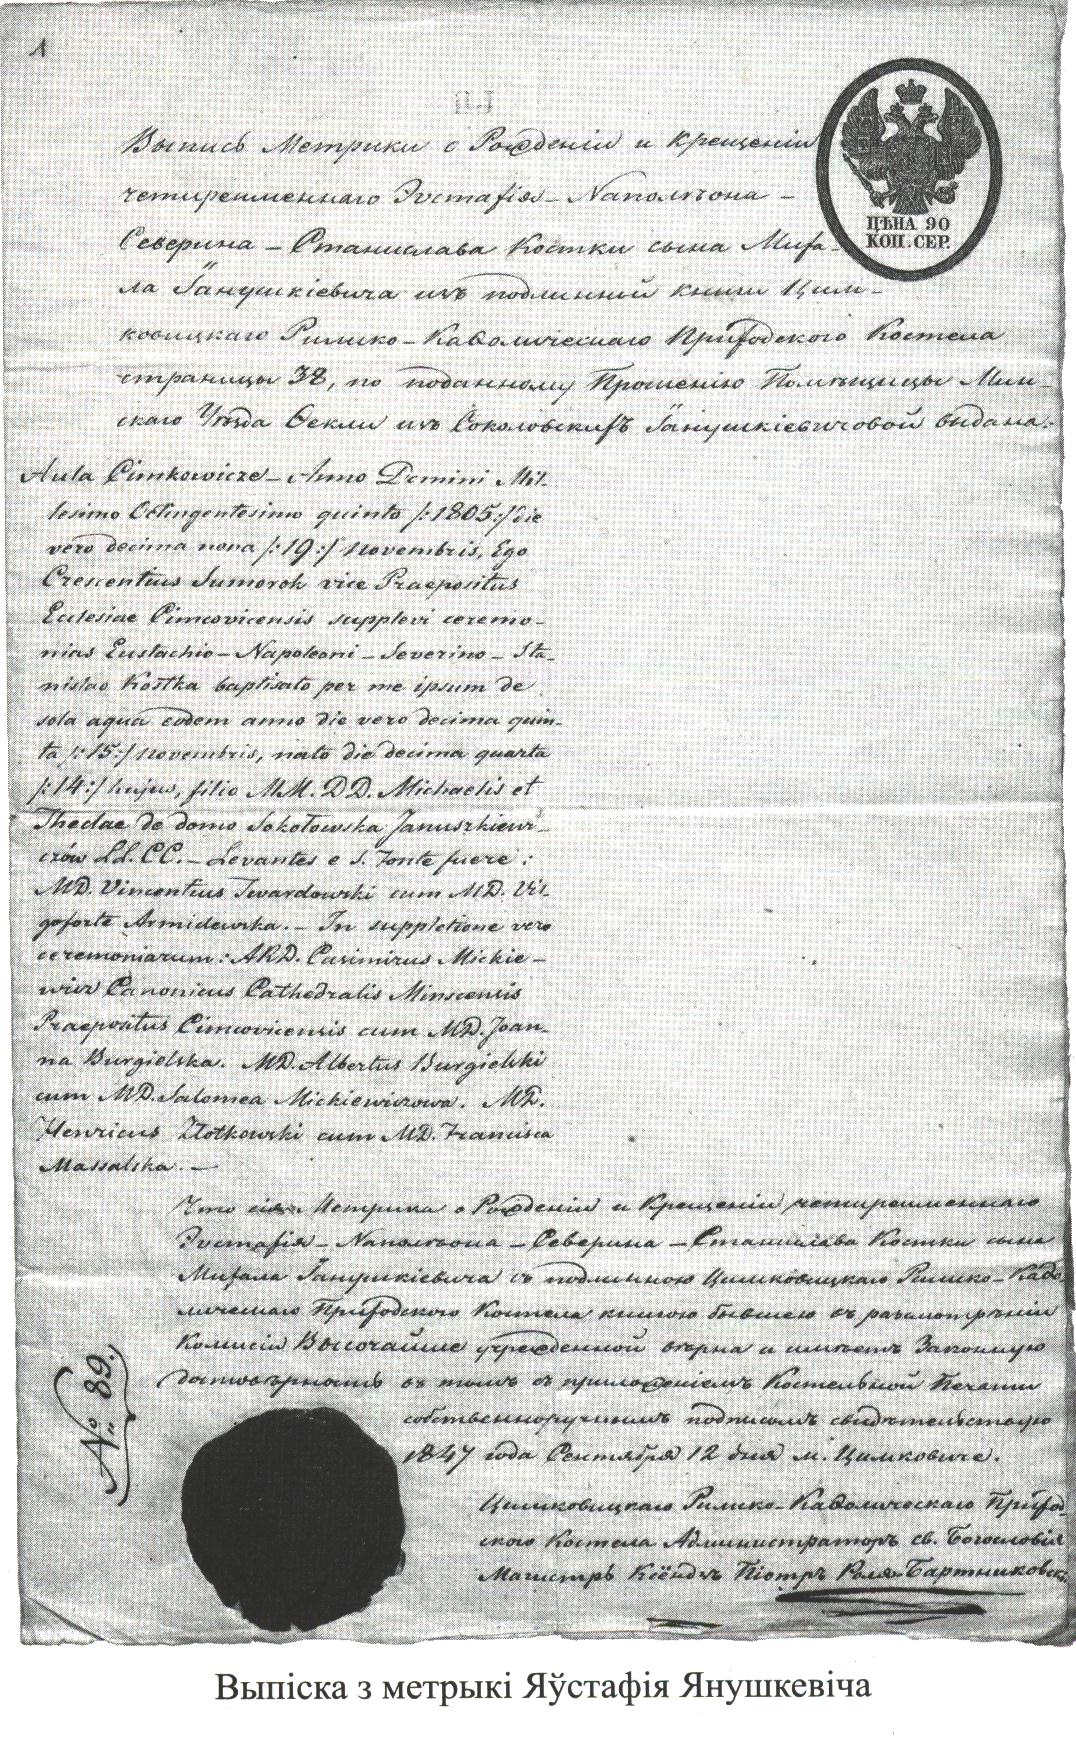 1
[1.]
ЦѢНА 90
КОП. СЕР.
Выпись Метрики о Рожденіи и Крещеніи
четыреименнаго Эвстафія – Наполѣона –
Северина – Станислава Костки сына Миха-
ла Янушкіевича изъ подлинной книги Цим-
ковицкаго Римско-Католическаго Приходского Костела
страницы 38, по поданному Прошенію Помѣщицы Мин-
скаго Уѣзда Текли изъ Соколовскихъ Янушкіевичовой видана:
Aula Cimkowicze – Anno Domini Mil-
lesimo Octingentesimo quinto /:1805:/ die
vero decima nona /:19:/ novembris, Ego
Crescentius Sumorok vice Praepositus
Eclesiae Cimcovicensis supplevi ceremo-
nias Eustachio – Napoleoni – Severino – Sta-
nislao Kostka baptisato per me ipsum de
sola aqua eodem anno die vero decima quin-
ta /:15:/ novembris, nato die decima quarta
/:14:/ hujus, filio M.M. D.D. Michaelis et
Theclae de domo Sokołowska Januszkiewi-
czów LL. CC. – Levantes e s. Fonte fuere:
MD. Vincentius Twardowski cum MD. Vil-
goforte Armidewska. – In suppletione vero
ceremoniarum: ARD. Casimirus Mickie-
wicz Canonicus Cathedralis Minscensis
Praepositus Cimcovicensis cum MD. Joan-
na Burgielska. MD. Albertus Burgielski
cum MD. Salomea Mickiewiczowa. MD.
Henricus Złotkowski cum MD. Francisca
Massalska. –
Что сія Метрика о Рожденіи и Крещеніи четыреименнаго
Эвстафія – Наполѣона – Северина – Станислава Костки сына
Михала Янушкіевича съ подлинною Цимковицкаго Римско-Като-
лическаго Приходского Костела книгою бывшею въ разсмотрѣніи
Комисіи Высочайше учрежденной вѣрна и имѣетъ Законную
достовѣрность въ томъ съ приложеніемъ Костельной Печати
собственноручнымъ подписомъ свидѣтельствую
1847 года Сентября 12 дня м. Цимковиче.
Цимковицкаго Римско-Католическаго Приход-
ского Костела Администраторъ св. Богословія
Магистръ Ксёндзъ Піотръ Роля-Бартниковскі
№ 89.
Выпіска з метрыкі Яўстафія Янушкевіча